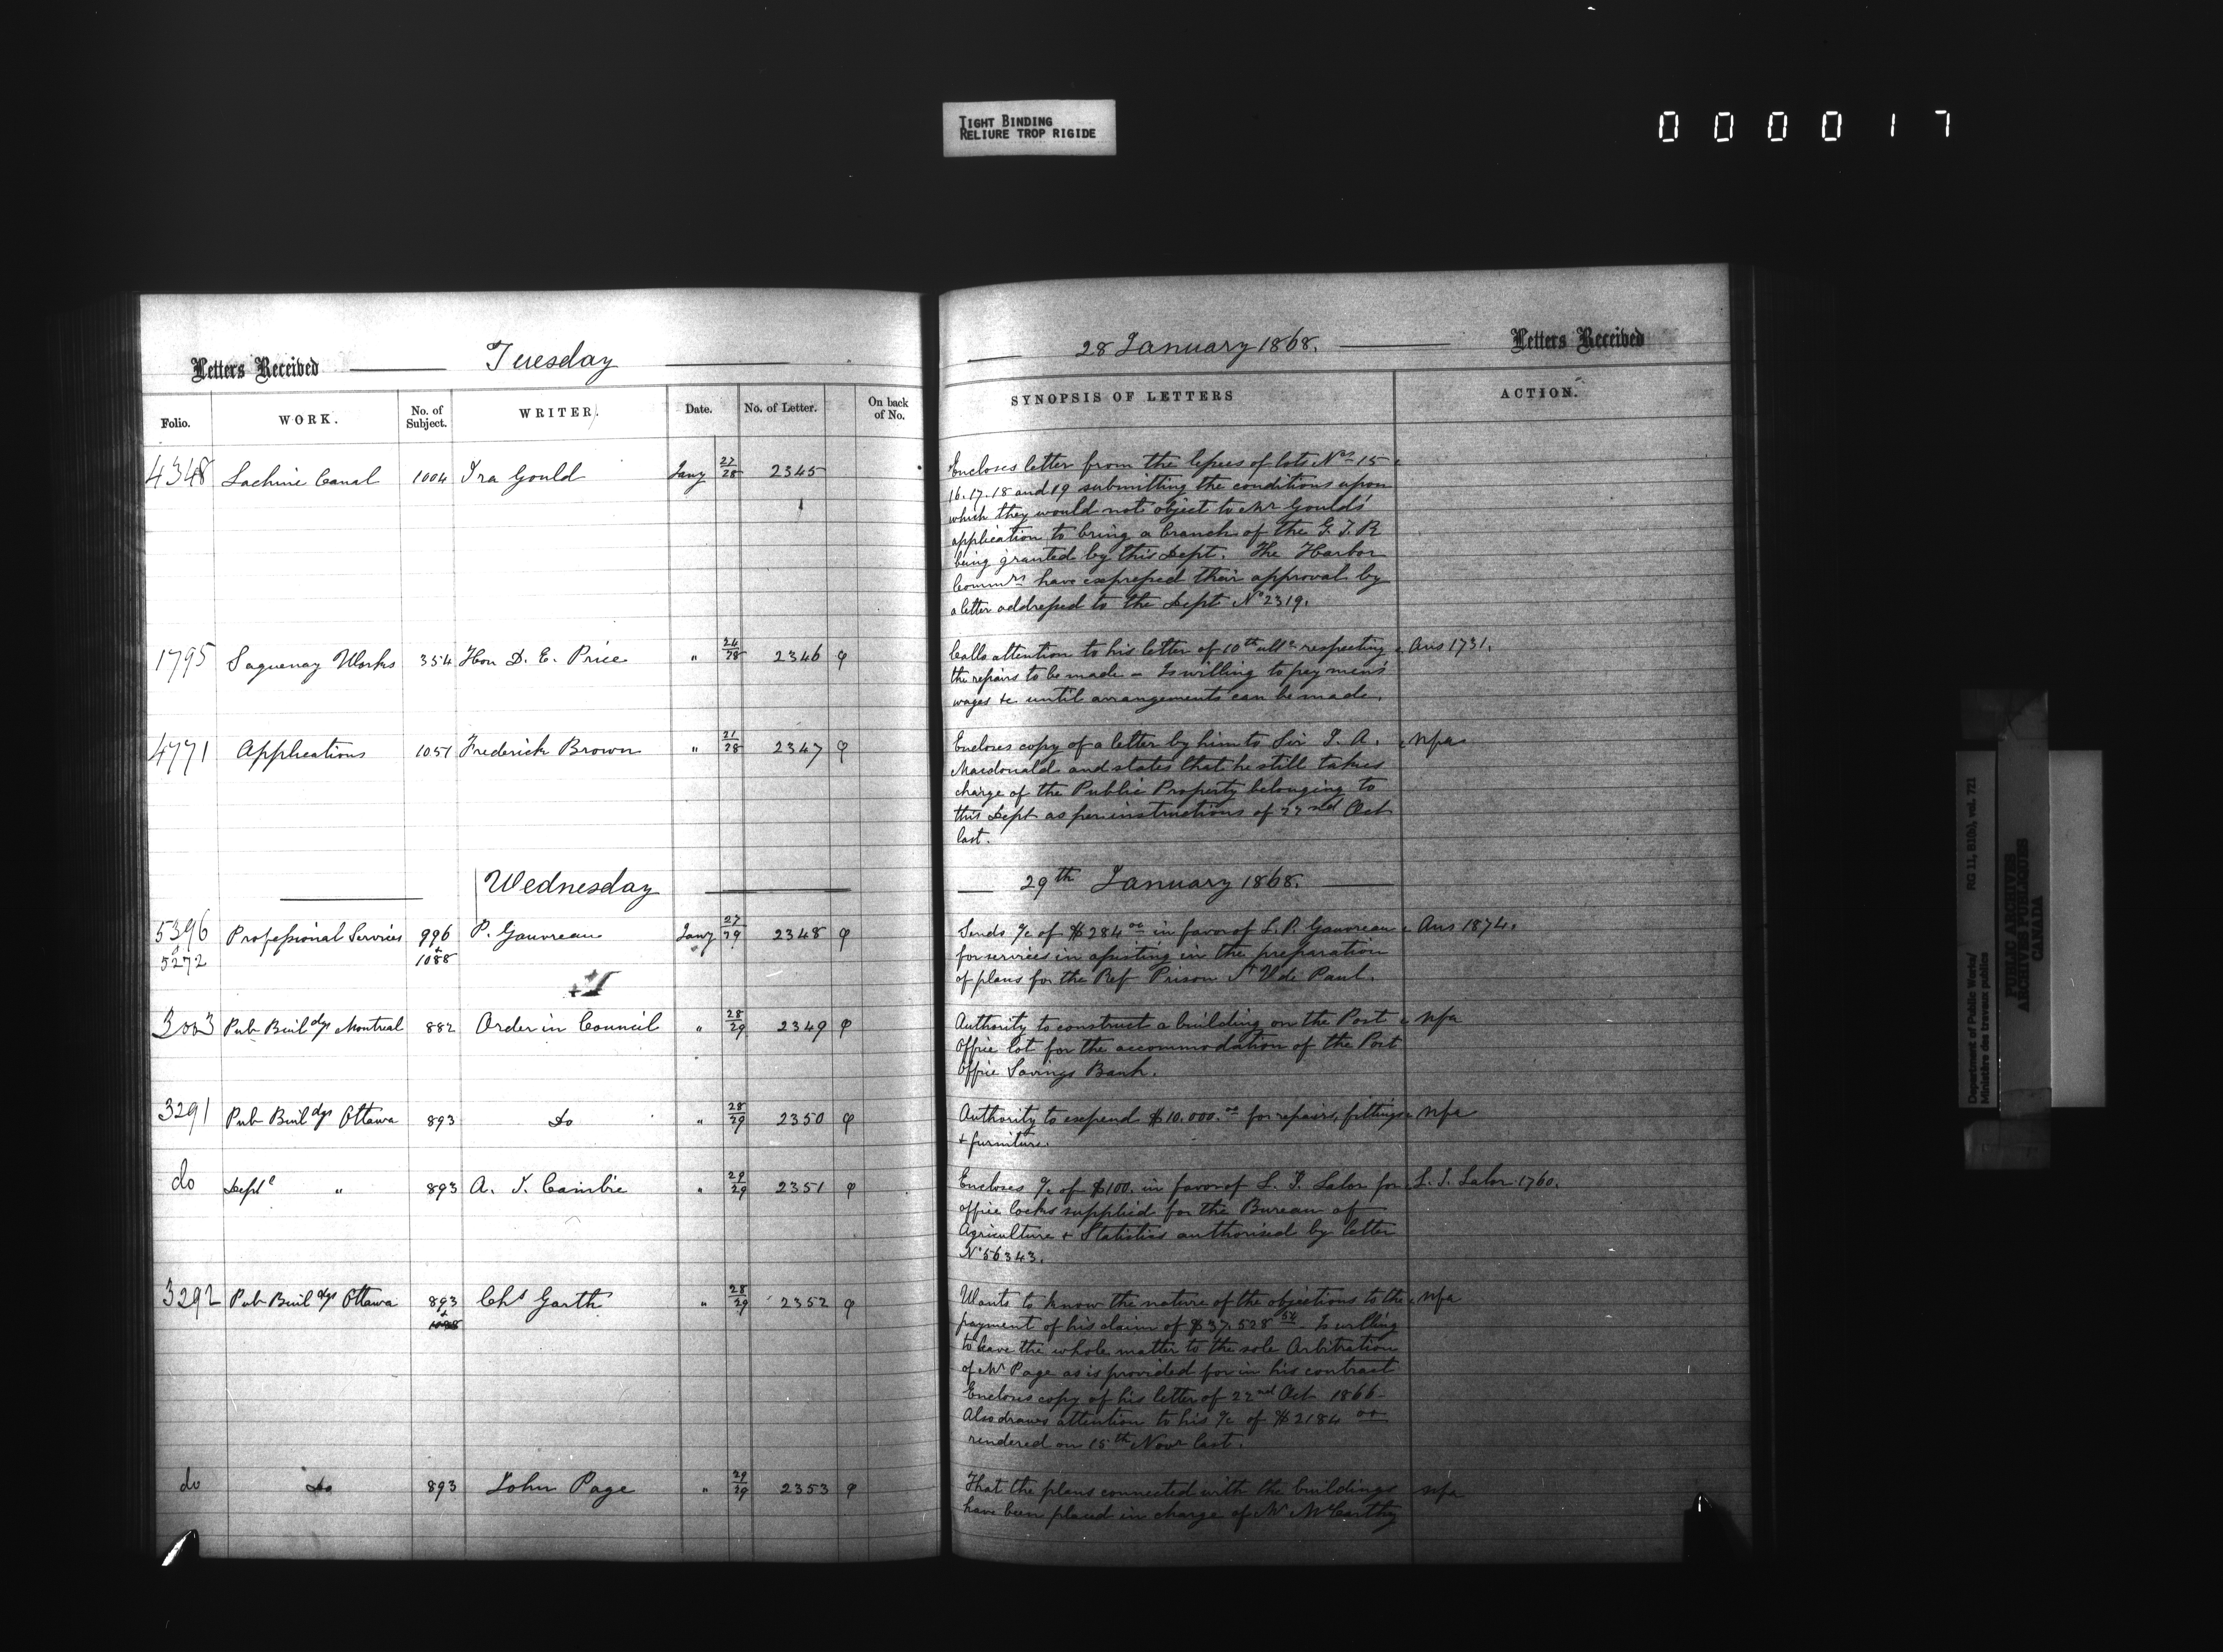 TIGHT BINDING
RELIURE TROP RIGIDE
000017
Letters Received Tuesday
Folio. WORK. No. of Subject. WRITER. Date. No. of Letter. On back of No.
4348 Lachine Canal 1004 Ira Gould Jany 27/28 2345
1795 Saguenay Works 354 Hon D. E. Price " 24/28 2346 φ
4771 Applications 1051 Frederick Brown " 21/28 2347 φ
Wednesday
5396 Professional Services 996 P. Gauvreau Jany 27/29 2348 φ
5272 + 1088
3003 Pub Buildgs Montreal 882 Order in Council " 28/29 2349 φ
3291 Pub Buildgs Ottawa 893 Do " 28/29 2350 φ
do Deptl " 893 A. J. Cambie " 29/29 2351 φ
3292 Pub Buildgs Ottawa 893 Chs Garth " 28/29 2352 φ
do Do 893 John Page " 29/29 2353 φ
28 January 1868. Letters Received
SYNOPSIS OF LETTERS ACTION.
Encloses letter from the lessees of lots Nos 15
16.17.18 and 19 submitting the conditions upon
which they would not object to Mr Gould's
application to bring a branch of the G. T. R
being granted by this Dept. The Harbor
Commrs have expressed their approval by
a letter addressed to the Dept No 2319.
Calls attention to his letter of 10th ulto respecting Ans 1731.
the repairs to be made - Is willing to pey men's
wages &c until arrangements can be made.
Encloses copy of a letter by him to Sir J. A. nfa
Macdonald and states that he still takes
charge of the Public Property belonging to
this Dept as per instructions of 22nd Oct
last.
29th January 1868.
Sends a/c of $284 00 in favor of L. P. Gauvreau Ans 1874.
for services in assisting in the preparation
of plans for the Ref Prison St V de Paul.
Authority to construct a building on the Post nfa
Office lot for the accommodation of the Post
Office Savings Bank.
Authority to expend $10.000.00 for repairs, fittings nfa
+ furniture.
Encloses a/c of $100. in favor of L. J. Lalor for L. J. Lalor 1760.
office locks supplied for the Bureau of
Agriculture + Statistics authorised by letter
No 56343.
Wants to know the nature of the objections to the nfa
payment of his claim of $37.528 54. Is willing
to leave the whole matter to the sole Arbitration
of Mr Page as is provided for in his contract
Encloses copy of his letter of 22nd Oct 1866.
Also draws attention to his a/c of $2184 00
rendered on 15th Novr last.
That the plans connected with the buildings nfa
have been placed in charge of Mr McCarthy
Department of Public Works/ RG 11, B1(b), vol. 721
Ministère des travaux publics
PUBLIC ARCHIVES
ARCHIVES PUBLIQUES
CANADA